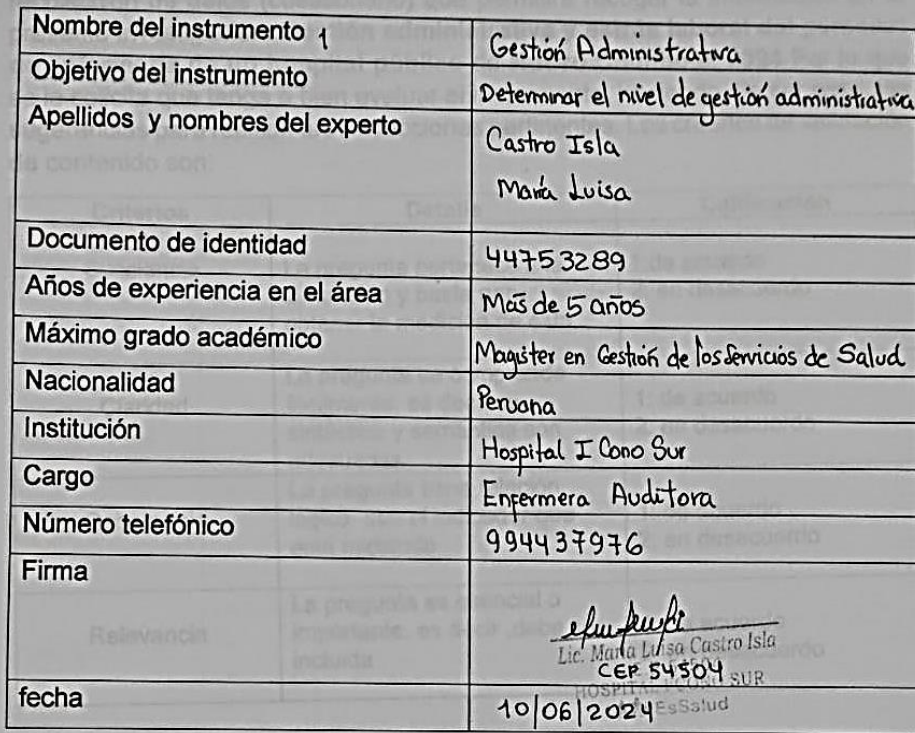 Nombre del instrumento 1 Gestión Administrativa
Objetivo del instrumento Determinar el nivel de gestión administrativa
Apellidos y nombres del experto Castro Isla
María Luisa
Documento de identidad 44753289
Años de experiencia en el área Más de 5 años
Máximo grado académico Magister en Gestión de los Servicios de Salud
Nacionalidad Peruana
Institución Hospital I Cono Sur
Cargo Enfermera Auditora
Número telefónico 994437976
Firma
Lic. María Luisa Castro Isla
CEP 54504
HOSPITAL I CONO SUR
EsSalud
fecha 10/06/2024